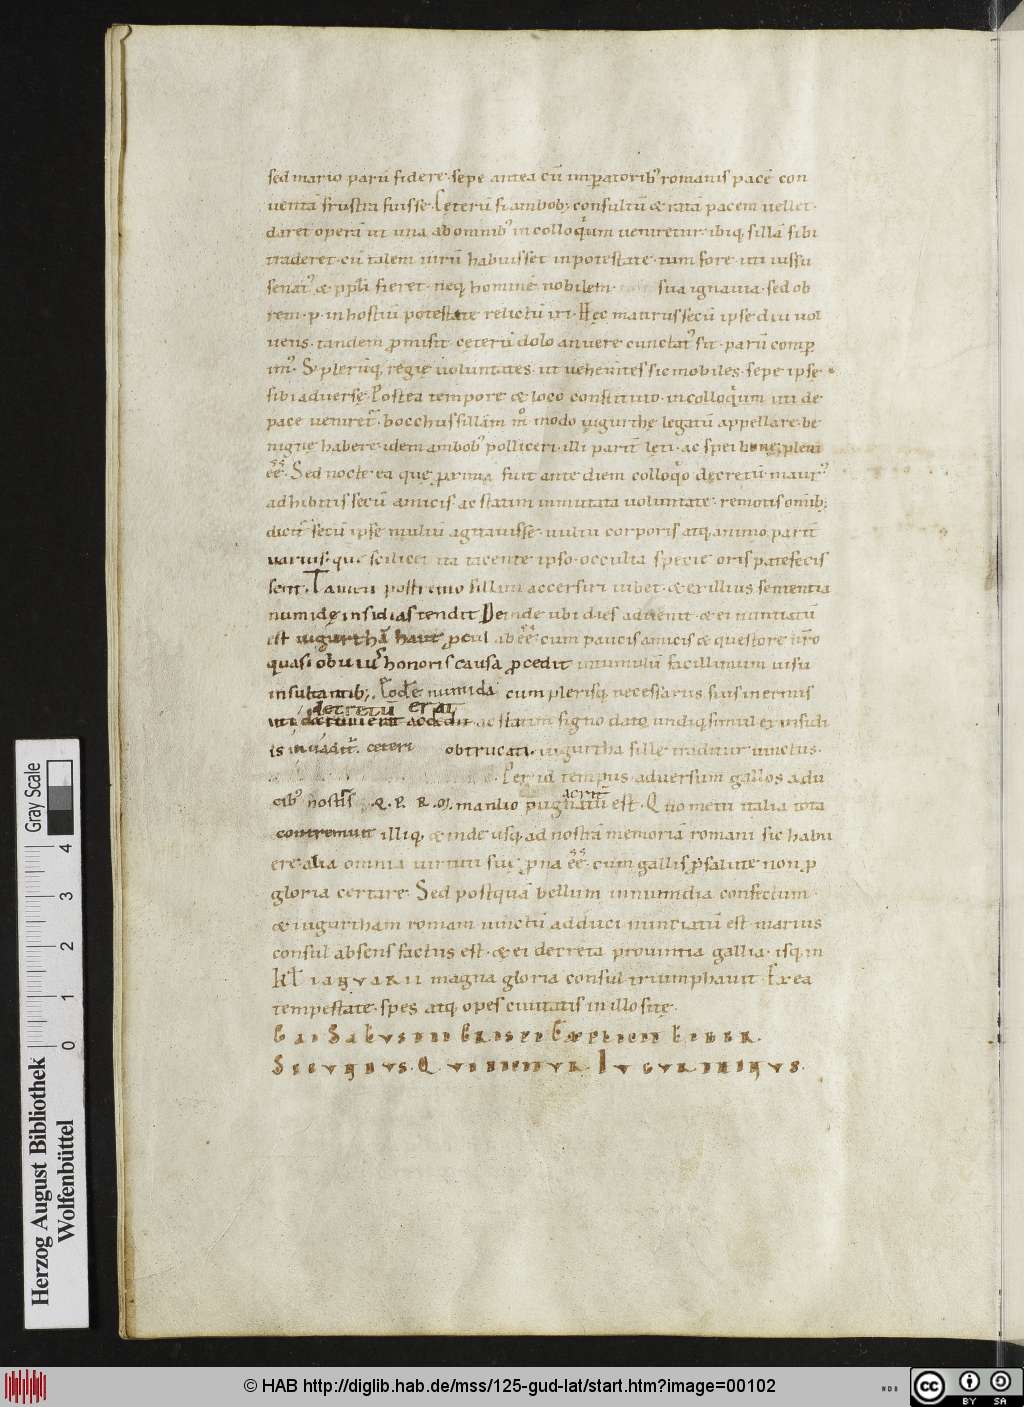 sed mario parū fidere · sepe antea cū imꝑatorib; romanis pacē con
ventā frustra fuisse · Ceterū si ambob; consultū & ratā pacem vellet ·
daret operā ut una ab omnib; in colloqͥum veniretur · ibiq; sillā sibi
traderet · cū talem virū habuisset in potestate · tum fore uti iussu
senat᷒ & ppl̄i fieret · neq; hominē nobilem · sua ignavia · sed ob
rem · p · in hostiū potestate relictū iri · Hęc maurus secū ipse diu vol
vens · tandem ꝓmisit · ceterū dolo an vere cunctat᷒ sit · parū comꝑ
im᷒ · S; plerūq; regię voluntates · ut vehem̄tes sic mobiles · sepe ipsę
sibi adversę · Postea tempore & loco constituto · in colloqͥum uti de
pace veniret᷒ · bocchus sillam m̊ modo iugurthę legatū appellare · be
nigne habere · idem ambob; polliceri · illi pariť lęti · ac spei bonę pleni
ēē · Sed nocte ea quę ꝑxima fuit ante diem colloqͥo decretū maur᷒
adhibitis secū amicis · ac statim inmutata voluntate · remotis om̄ib;
dicit᷒ secū ipse multū agitavisse · vultu corporis atq; animo pariť
varius · que scilicet ita tacente ipso · occulta specie oris patefecis
sent · Tamen postremo sillam accersiri iubet · & ex illius sententia
numidę insidias tendit Deinde ubi dies advenit · & ei nuntiatū
est iugurthā haut ꝓcul abēē · cum paucis amicis & questore nr̄o
quasi obviu᷒ honoris causa ꝓcedit in tumulū facillimum visu
insidiantib; · Eodē numida cum plerisq; necessariis suis inermis
decretū erat
uti dictum erat accedit ac statim signo dato undiq; simul ex insidi
is invadit᷒ · ceteri obtrucati · iugurtha sille traditur vinctus ·
Per id tempus · adversum gallos a du
cib; nostris · Q · P · R · M · manlio pugnatū est · Quo metu italia tota
acriť
contremuit illiq; & inde usq; ad nostrā memoriā romani sic habu
ere · alia omnia virtuti suę ꝓna ēē · cum gallis ꝓ salute non ꝓ
gloria certare · Sed postquā bellum in numidia confectum ·
& iugurtham romam vinctū adduci nuntiatū est · marius
consul absens factus est · & ei decreta provintia gallia · isq; in
KL̄ ianuarii magna gloria consul triumphavit · Ex ea
tempestate · spes atq; opes civitatis in illo sitę ·
Gai Salusti Crispi Explicit Liber
Secundus · Q · Iugurtinus ·
Herzog August Bibliothek
Wolfenbüttel
Gray Scale
0 1 2 3 4
© HAB http://diglib.hab.de/mss/125-gud-lat/start.htm?image=00102
cc BY SA